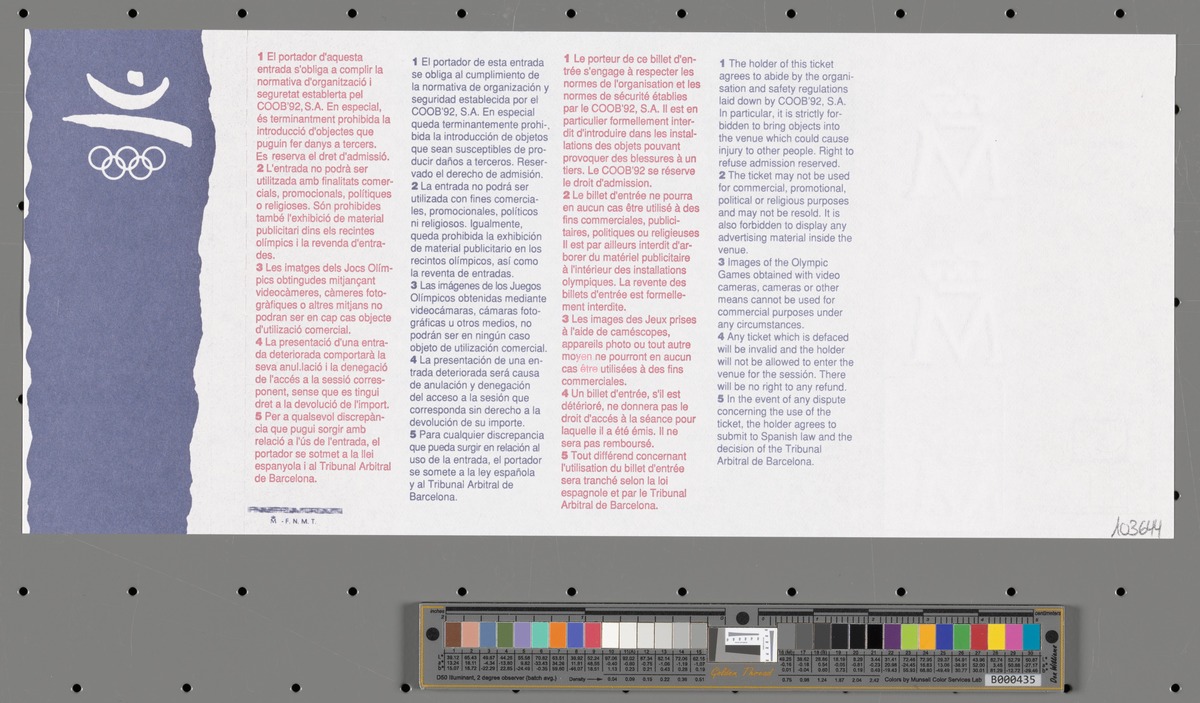 1 El portador d'aquesta
entrada s'obliga a complir la
normativa d'organització i
seguretat establerta pel
COOB'92, S.A. En especial,
és terminantment prohibida la
introducció d'objectes que
puguin fer danys a tercers.
Es reserva el dret d'admissió.
2 L'entrada no podrà ser
utilitzada amb finalitats comer-
cials, promocionals, polítiques
o religioses. Són prohibides
també l'exhibició de material
publicitari dins els recintes
olímpics i la revenda d'entra-
des.
3 Les imatges dels Jocs Olím-
pics obtingudes mitjançant
videocàmeres, càmeres foto-
gràfiques o altres mitjans no
podran ser en cap cas objecte
d'utilizació comercial.
4 La presentació d'una entra-
da deteriorada comportarà la
seva anul.lació i la denegació
de l'accés a la sessió corres-
ponent, sense que es tingui
dret a la devolució de l'import.
5 Per a qualsevol discrepàn-
cia que pugui sorgir amb
relació a l'ús de l'entrada, el
portador se sotmet a la llei
espanyola i al Tribunal Arbitral
de Barcelona.
M - F. N. M. T.
1 El portador de esta entrada
se obliga al cumplimiento de
la normativa de organización y
seguridad establecida por el
COOB'92, S.A. En especial
queda terminantemente prohi-
bida la introducción de objetos
que sean susceptibles de pro-
ducir daños a terceros. Reser-
vado el derecho de admisión.
2 La entrada no podrá ser
utilizada con fines comercia-
les, promocionales, políticos
ni religiosos. Igualmente,
queda prohibida la exhibición
de material publicitario en los
recintos olímpicos, así como
la reventa de entradas.
3 Las imágenes de los Juegos
Olímpicos obtenidas mediante
videocámaras, cámaras foto-
gráficas u otros medios, no
podrán ser en ningún caso
objeto de utilización comercial.
4 La presentación de una en-
trada deteriorada será causa
de anulación y denegación
del acceso a la sesión que
corresponda sin derecho a la
devolución de su importe.
5 Para cualquier discrepancia
que pueda surgir en relación al
uso de la entrada, el portador
se somete a la ley española
y al Tribunal Arbitral de
Barcelona.
1 Le porteur de ce billet d'en-
trée s'engage à respecter les
normes de l'organisation et les
normes de sécurité établies
par le COOB'92, S.A. Il est en
particulier formellement inter-
dit d'introduire dans les instal-
lations des objets pouvant
provoquer des blessures à un
tiers. Le COOB'92 se réserve
le droit d'admission.
2 Le billet d'entrée ne pourra
en aucun cas être utilisé à des
fins commerciales, publici-
taires, politiques ou religieuses
Il est par ailleurs interdit d'ar-
borer du matériel publicitaire
à l'intérieur des installations
olympiques. La revente des
billets d'entrée est formelle-
ment interdite.
3 Les images des Jeux prises
à l'aide de caméscopes,
appareils photo ou tout autre
moyen ne pourront en aucun
cas être utilisées à des fins
commerciales.
4 Un billet d'entrée, s'il est
détérioré, ne donnera pas le
droit d'accès à la séance pour
laquelle il a été émis. Il ne
sera pas remboursé.
5 Tout différend concernant
l'utilisation du billet d'entrée
sera tranché selon la loi
espagnole et par le Tribunal
Arbitral de Barcelona.
1 The holder of this ticket
agrees to abide by the organi-
sation and safety regulations
laid down by COOB'92, S.A.
In particular, it is strictly for-
bidden to bring objects into
the venue which could cause
injury to other people. Right to
refuse admission reserved.
2 The ticket may not be used
for commercial, promotional,
political or religious purposes
and may not be resold. It is
also forbidden to display any
advertising material inside the
venue.
3 Images of the Olympic
Games obtained with video
cameras, cameras or other
means cannot be used for
commercial purposes under
any circumstances.
4 Any ticket which is defaced
will be invalid and the holder
will not be allowed to enter the
venue for the sessión. There
will be no right to any refund.
5 In the event of any dispute
concerning the use of the
ticket, the holder agrees to
submit to Spanish law and the
decision of the Tribunal
Arbitral de Barcelona.
103644
inches
centimetres
D50 Illuminant, 2 degree observer (batch avg.)
Density
Golden Thread
Colors by Munsell Color Services Lab
B000435